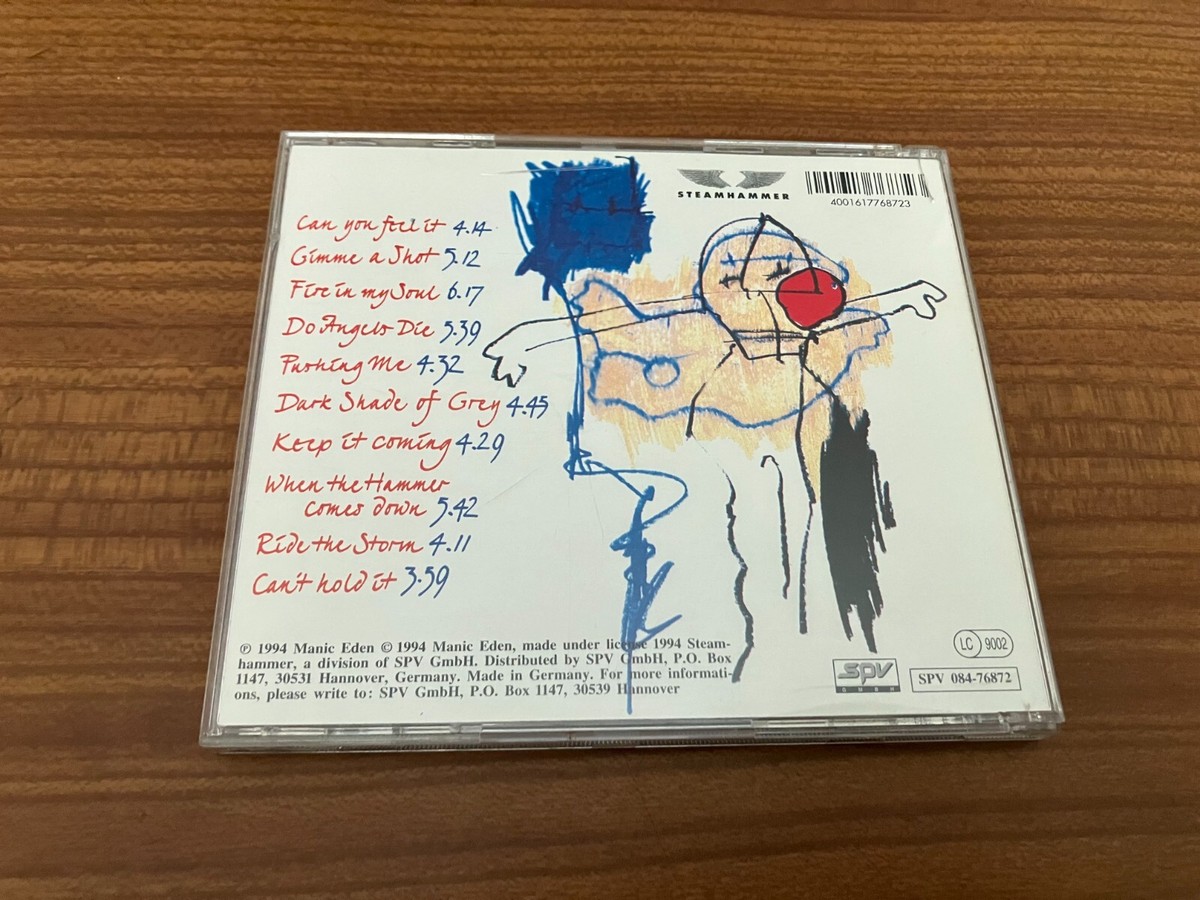 STEAMHAMMER
4001617768723
Can you feel it 4.14
Gimme a Shot 5.12
Fire in my Soul 6.17
Do Angels Die 5.39
Pushing Me 4.32
Dark Shade of Grey 4.45
Keep it coming 4.29
When the Hammer
comes down 5.42
Ride the Storm 4.11
Can't hold it 3.59
℗ 1994 Manic Eden © 1994 Manic Eden, made under license 1994 Steam-
hammer, a division of SPV GmbH. Distributed by SPV GmbH, P.O. Box
1147, 30531 Hannover, Germany. Made in Germany. For more informati-
ons, please write to: SPV GmbH, P.O. Box 1147, 30539 Hannover
LC 9002
SPV
GMBH
SPV 084-76872